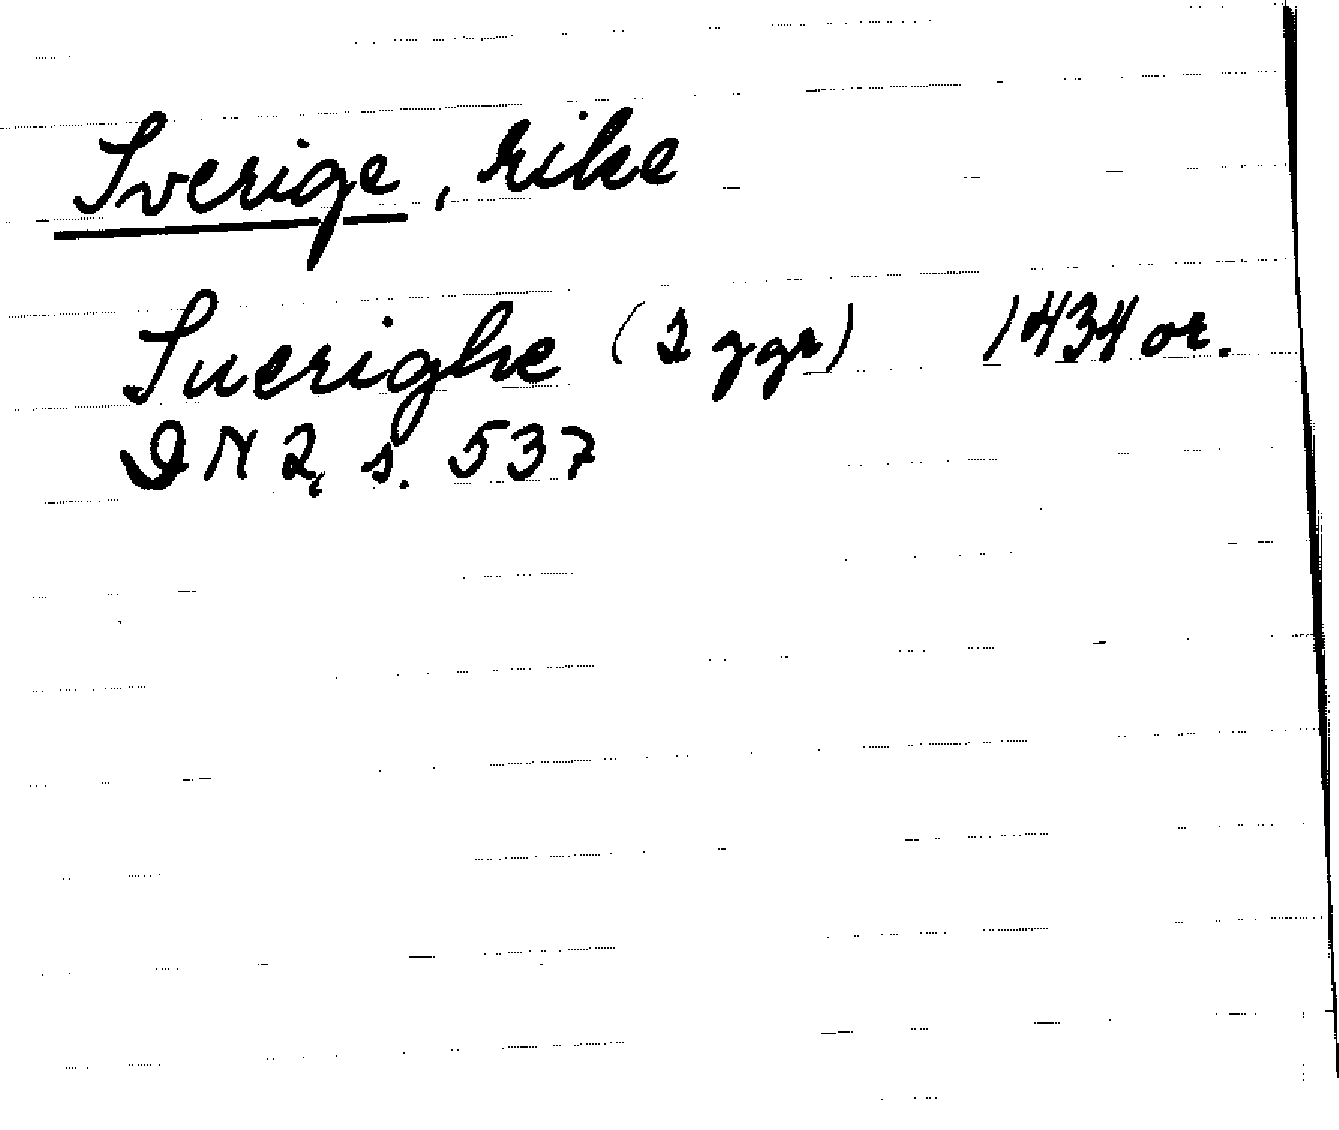 Sverige, rike
Suerighe (2 ggr) 1434 or.
DN 2, s. 537